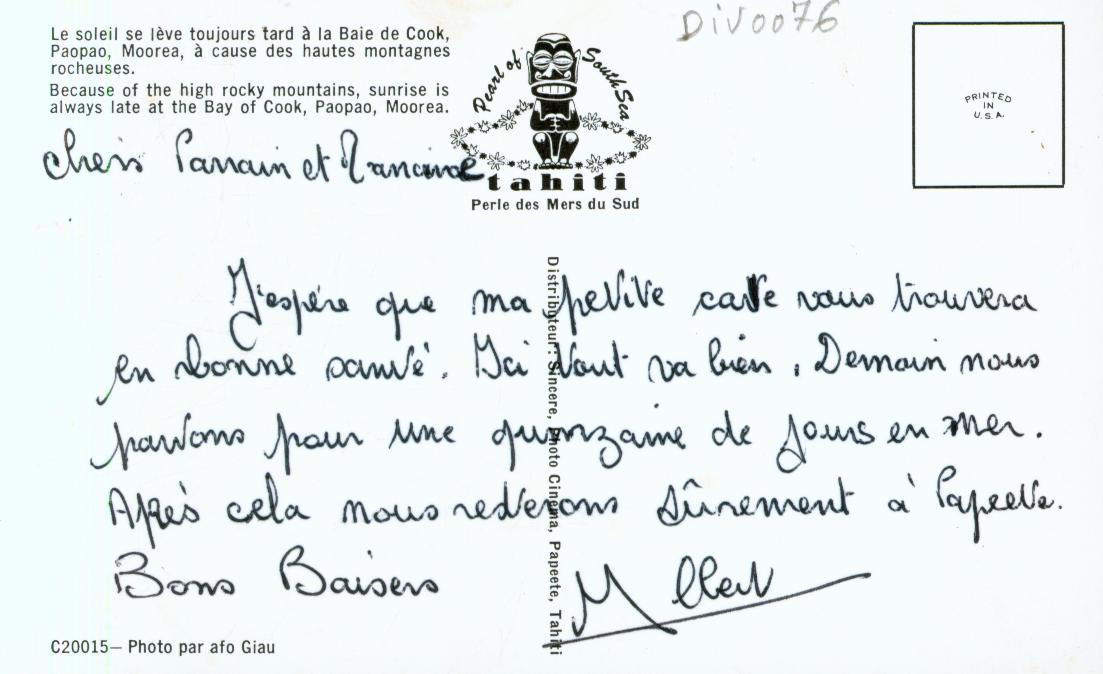 Div0076
Le soleil se lève toujours tard à la Baie de Cook,
Paopao, Moorea, à cause des hautes montagnes
rocheuses.
Because of the high rocky mountains, sunrise is
always late at the Bay of Cook, Paopao, Moorea.
Pearl of South Sea
tahiti
Perle des Mers du Sud
PRINTED
IN
U.S.A.
Chers Parrain et Marraine
J'espére que ma petite carte vous trouvera
en bonne santé. Ici tout va bien, Demain nous
partons pour une quinzaine de jours en mer.
Après cela nous resterons sûrement à Papeete.
Bons Baisers
Distributeur: Sincere, Photo Cinema, Papeete, Tahiti
C20015– Photo par afo Giau